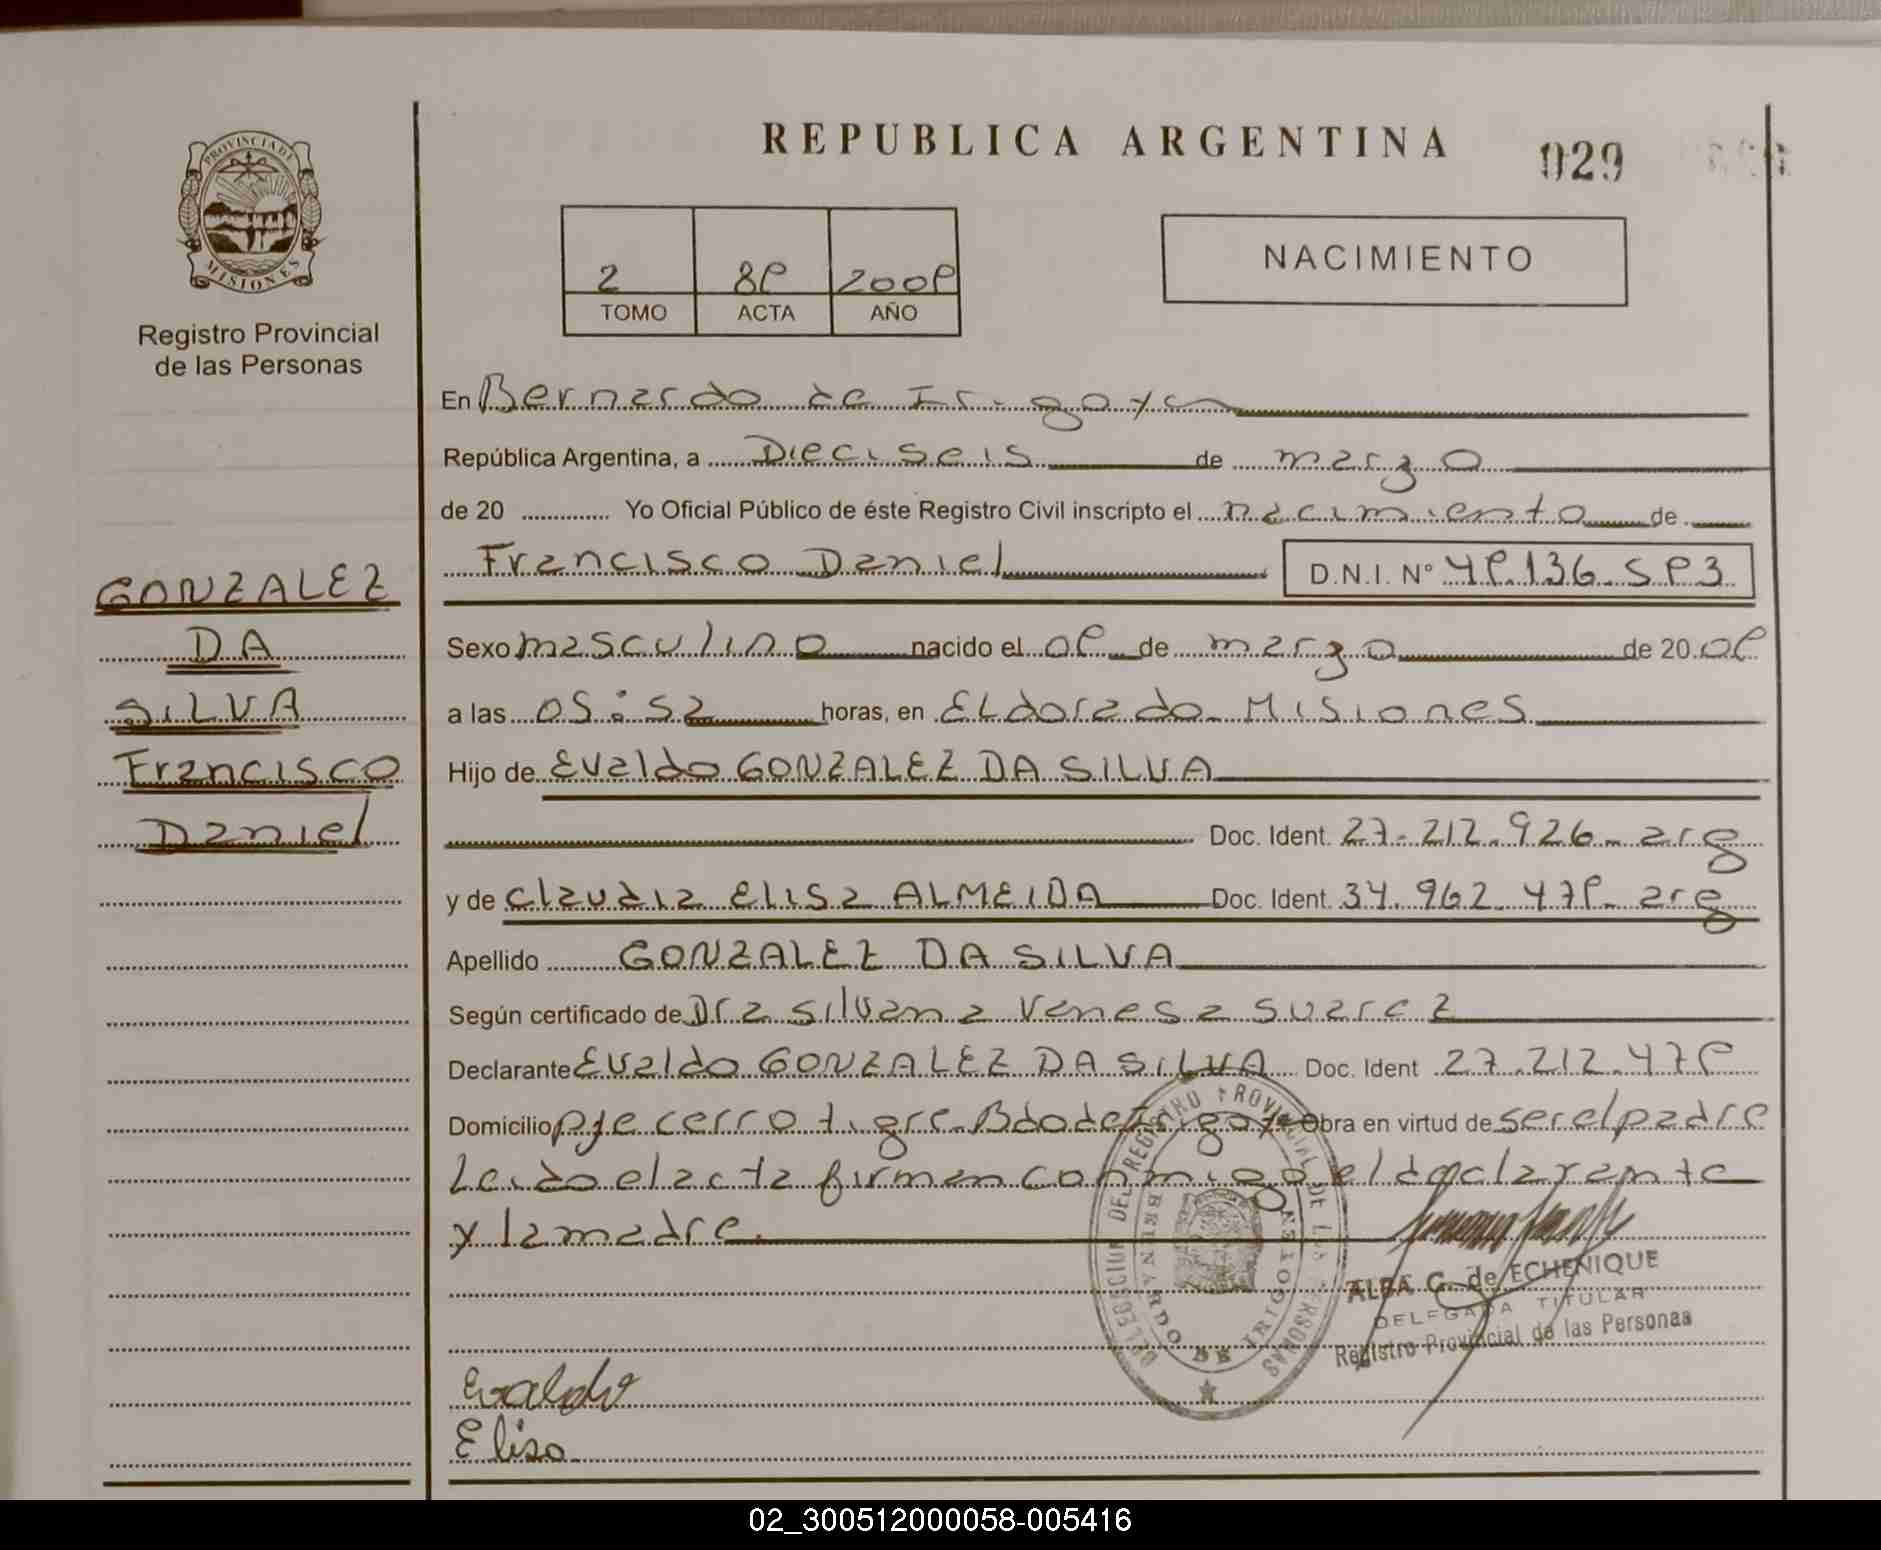 REPUBLICA ARGENTINA
029
PROVINCIA DE
MISIONES
Registro Provincial
de las Personas
2 89 2009
TOMO ACTA AÑO
NACIMIENTO
En Bernardo de Irigoyen
República Argentina, a Dieciseis de marzo
de 20 .............. Yo Oficial Público de éste Registro Civil inscripto el nacimiento de
Francisco Daniel D.N.I. N° 49.136.593
GONZALEZ
DA
SILVA
Francisco
Daniel
Sexo masculino nacido el 09 de marzo de 20 09
a las 05:52 horas, en Eldorado Misiones
Hijo de Evaldo GONZALEZ DA SILVA
Doc. Ident. 27.212.926 - arg
y de Claudia Elisa ALMEIDA Doc. Ident. 34.962.479 - arg
Apellido GONZALEZ DA SILVA
Según certificado de Dra Silvana Vanesa Suarez
Declarante Evaldo GONZALEZ DA SILVA Doc. Ident 27.212.479
Domicilio Pje cerro tigre Bdo de Irigoy Obra en virtud de ser el padre
Leido el acta firman conmigo el declarante
y la madre.
DELEGACION DEL REGISTRO PROVINCIAL DE LAS PERSONAS
BERNARDO DE IRIGOYEN
ALBA G. de ECHENIQUE
DELEGADA TITULAR
Registro Provincial de las Personas
Evaldo
Elisa
02_300512000058-005416